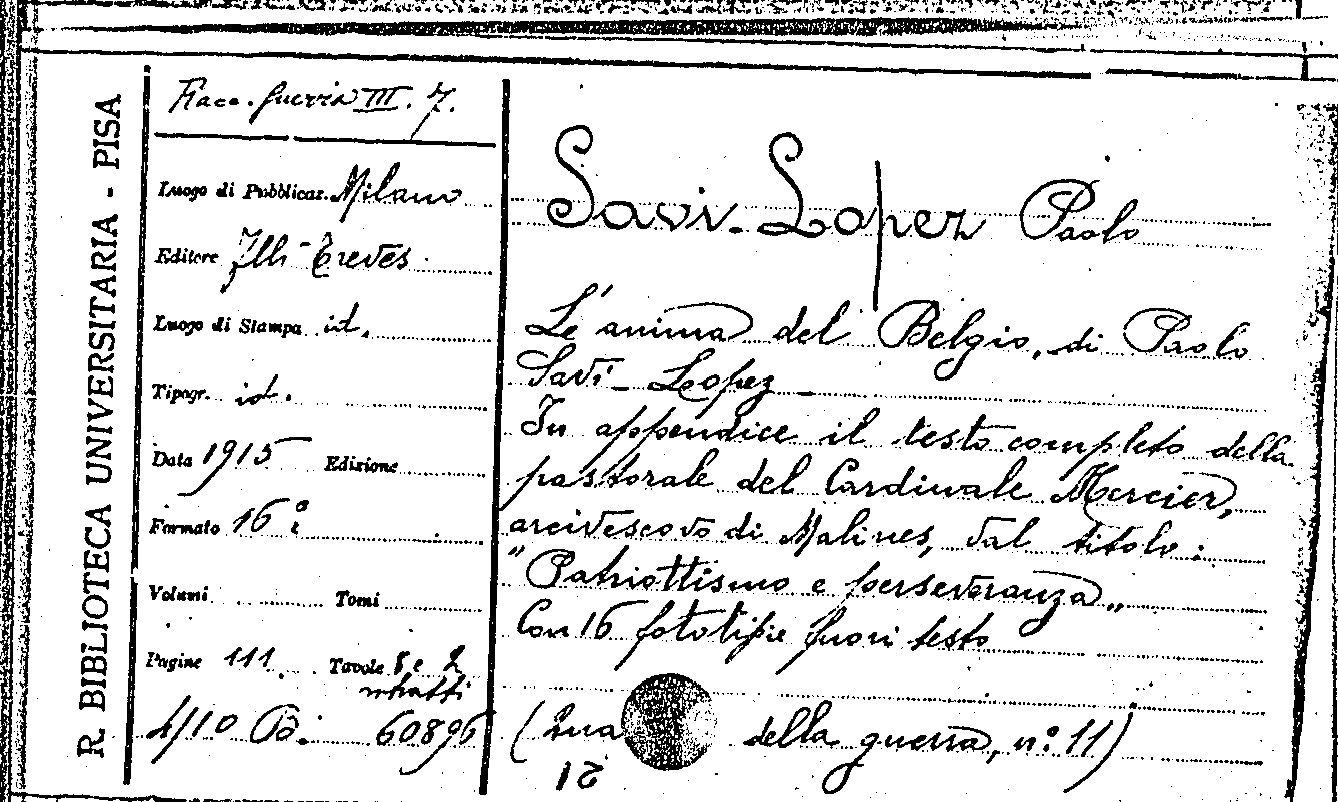 R. BIBLIOTECA UNIVERSITARIA - PISA
Racc. guerra III. 7.
Luogo di Pubblicaz. Milano
Editore Flli Treves
Luogo di Stampa id.
Tipogr. id.
Data 1915 Edizione
Formato 16º
Volumi Tomi
Pagine 111. Tavole 8 e 2
ritratti
4/10 60896
Savi-Lopez Paolo
L'anima del Belgio, di Paolo
Savi-Lopez
In appendice il testo completo della
pastorale del Cardinale Mercier,
arcivescovo di Malines, dal titolo:
"Patriottismo e perseveranza„
Con 16 fototipie fuori testo
(Qua della guerra, n.º 11)
12